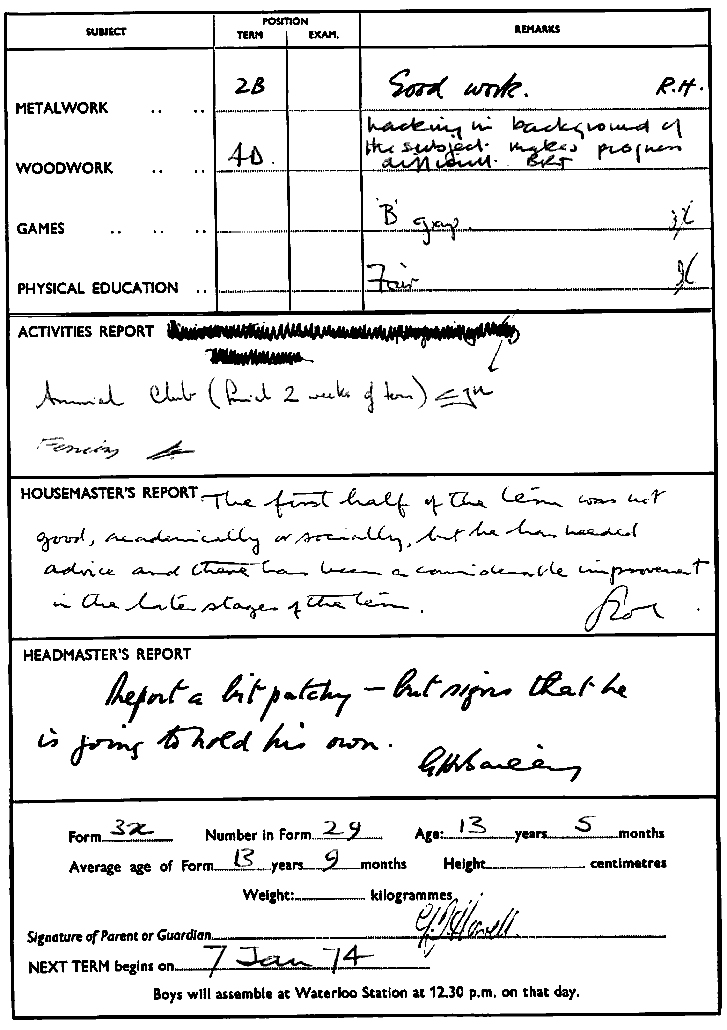 SUBJECT POSITION REMARKS
TERM EXAM.
METALWORK .. .. 2B Good work. R.H.
WOODWORK .. .. 4D. Lacking in background of
the subject makes progress
difficult. BRT
GAMES .. .. .. 'B' group.
PHYSICAL EDUCATION .. Fair
ACTIVITIES REPORT
Animal Club ( 2 weeks of term)
Fencing
HOUSEMASTER'S REPORT The first half of the term was not
good, academically or socially, but he has heeded
advice and there has been a considerable improvement
in the later stages of the term.
HEADMASTER'S REPORT
Report a bit patchy – but signs that he
is going to hold his own.
Form 3x Number in Form 24 Age: 13 years 5 months
Average age of Form 13 years 9 months Height centimetres
Weight: kilogrammes
Signature of Parent or Guardian
NEXT TERM begins on 7 Jan 74
Boys will assemble at Waterloo Station at 12.30 p.m. on that day.